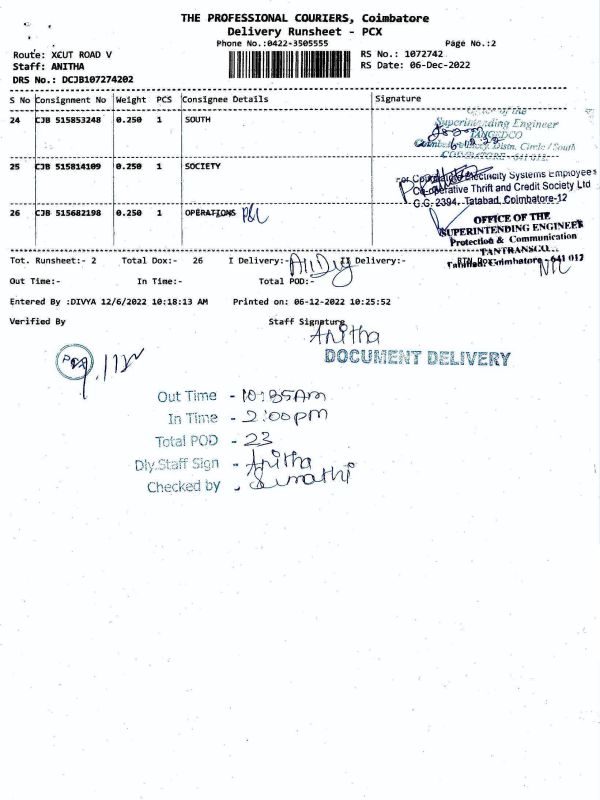 THE PROFESSIONAL COURIERS, Coimbatore
Delivery Runsheet - PCX
Phone No.:0422-3505555 Page No.:2
Route: XCUT ROAD V RS No.: 1072742
Staff: ANITHA RS Date: 06-Dec-2022
DRS No.: DCJB107274202
S No Consignment No Weight PCS Consignee Details Signature
24 CJB 515853248 0.250 1 SOUTH
Superintending Engineer
TANGEDCO
Distn. Circle / South
COIMBATORE - 641 012.
25 CJB 515814109 0.250 1 SOCIETY
For Coimbatore Electricity Systems Employees
Co-operative Thrift and Credit Society Ltd
G.G. 2394, Tatabad, Coimbatore-12
26 CJB 515682198 0.250 1 OPERATIONS
OFFICE OF THE
SUPERINTENDING ENGINEER
Protection & Communication
TANTRANSCO.
Tatabad, Coimbatore - 641 012
Tot. Runsheet:- 2 Total Dox:- 26 I Delivery:- II Delivery:-
Out Time:- In Time:- Total POD:-
Entered By :DIVYA 12/6/2022 10:18:13 AM Printed on: 06-12-2022 10:25:52
Verified By Staff Signature
Anitha
DOCUMENT DELIVERY
Out Time - 10:35Am
In Time - 2:00pm
Total POD - 23
Dly.Staff Sign - Anitha
Checked by - Sumathi